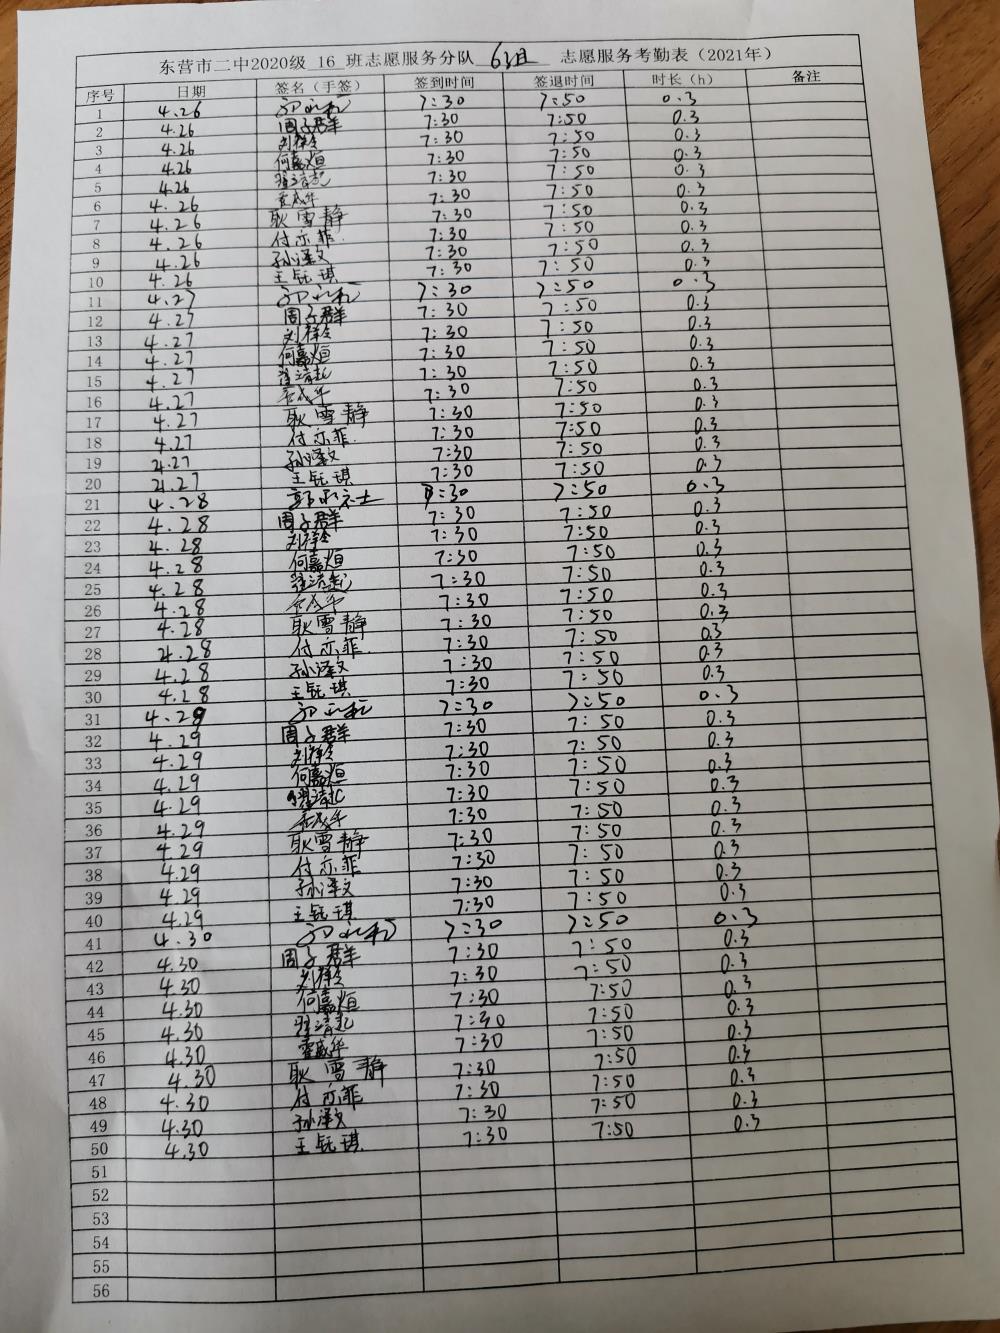 东营市二中2020级 16 班志愿服务分队 6组 志愿服务考勤表（2021年）
序号 日期 签名（手签） 签到时间 签退时间 时长（h） 备注
1 4.26 7:30 7:50 0.3
2 4.26 周子群 7:30 7:50 0.3
3 4.26 7:30 7:50 0.3
4 4.26 何嘉烜 7:30 7:50 0.3
5 4.26 7:30 7:50 0.3
6 4.26 7:30 7:50 0.3
7 4.26 耿雪静 7:30 7:50 0.3
8 4.26 付亦菲. 7:30 7:50 0.3
9 4.26 孙泽文 7:30 7:50 0.3
10 4.26 王钰琪 7:30 7:50 0.3
11 4.27 7:30 7:50 0.3
12 4.27 周子群 7:30 7:50 0.3
13 4.27 7:30 7:50 0.3
14 4.27 何嘉烜 7:30 7:50 0.3
15 4.27 7:30 7:50 0.3
16 4.27 7:30 7:50 0.3
17 4.27 耿雪静 7:30 7:50 0.3
18 4.27 付亦菲. 7:30 7:50 0.3
19 4.27 孙泽文 7:30 7:50 0.3
20 4.27 王钰琪 7:30 7:50 0.3
21 4.28 7:30 7:50 0.3
22 4.28 周子群 7:30 7:50 0.3
23 4.28 7:30 7:50 0.3
24 4.28 何嘉烜 7:30 7:50 0.3
25 4.28 7:30 7:50 0.3
26 4.28 7:30 7:50 0.3
27 4.28 耿雪静 7:30 7:50 0.3
28 4.28 付亦菲. 7:30 7:50 0.3
29 4.28 孙泽文 7:30 7:50 0.3
30 4.28 王钰琪 7:30 7:50 0.3
31 4.29 7:30 7:50 0.3
32 4.29 周子群 7:30 7:50 0.3
33 4.29 7:30 7:50 0.3
34 4.29 何嘉烜 7:30 7:50 0.3
35 4.29 7:30 7:50 0.3
36 4.29 7:30 7:50 0.3
37 4.29 耿雪静 7:30 7:50 0.3
38 4.29 付亦菲 7:30 7:50 0.3
39 4.29 孙泽文 7:30 7:50 0.3
40 4.29 王钰琪 7:30 7:50 0.3
41 4.30 7:30 7:50 0.3
42 4.30 周子群 7:30 7:50 0.3
43 4.30 7:30 7:50 0.3
44 4.30 何嘉烜 7:30 7:50 0.3
45 4.30 7:30 7:50 0.3
46 4.30 7:30 7:50 0.3
47 4.30 耿雪静 7:30 7:50 0.3
48 4.30 付亦菲 7:30 7:50 0.3
49 4.30 孙泽文 7:30 7:50 0.3
50 4.30 王钰琪. 7:30 7:50 0.3
51
52
53
54
55
56